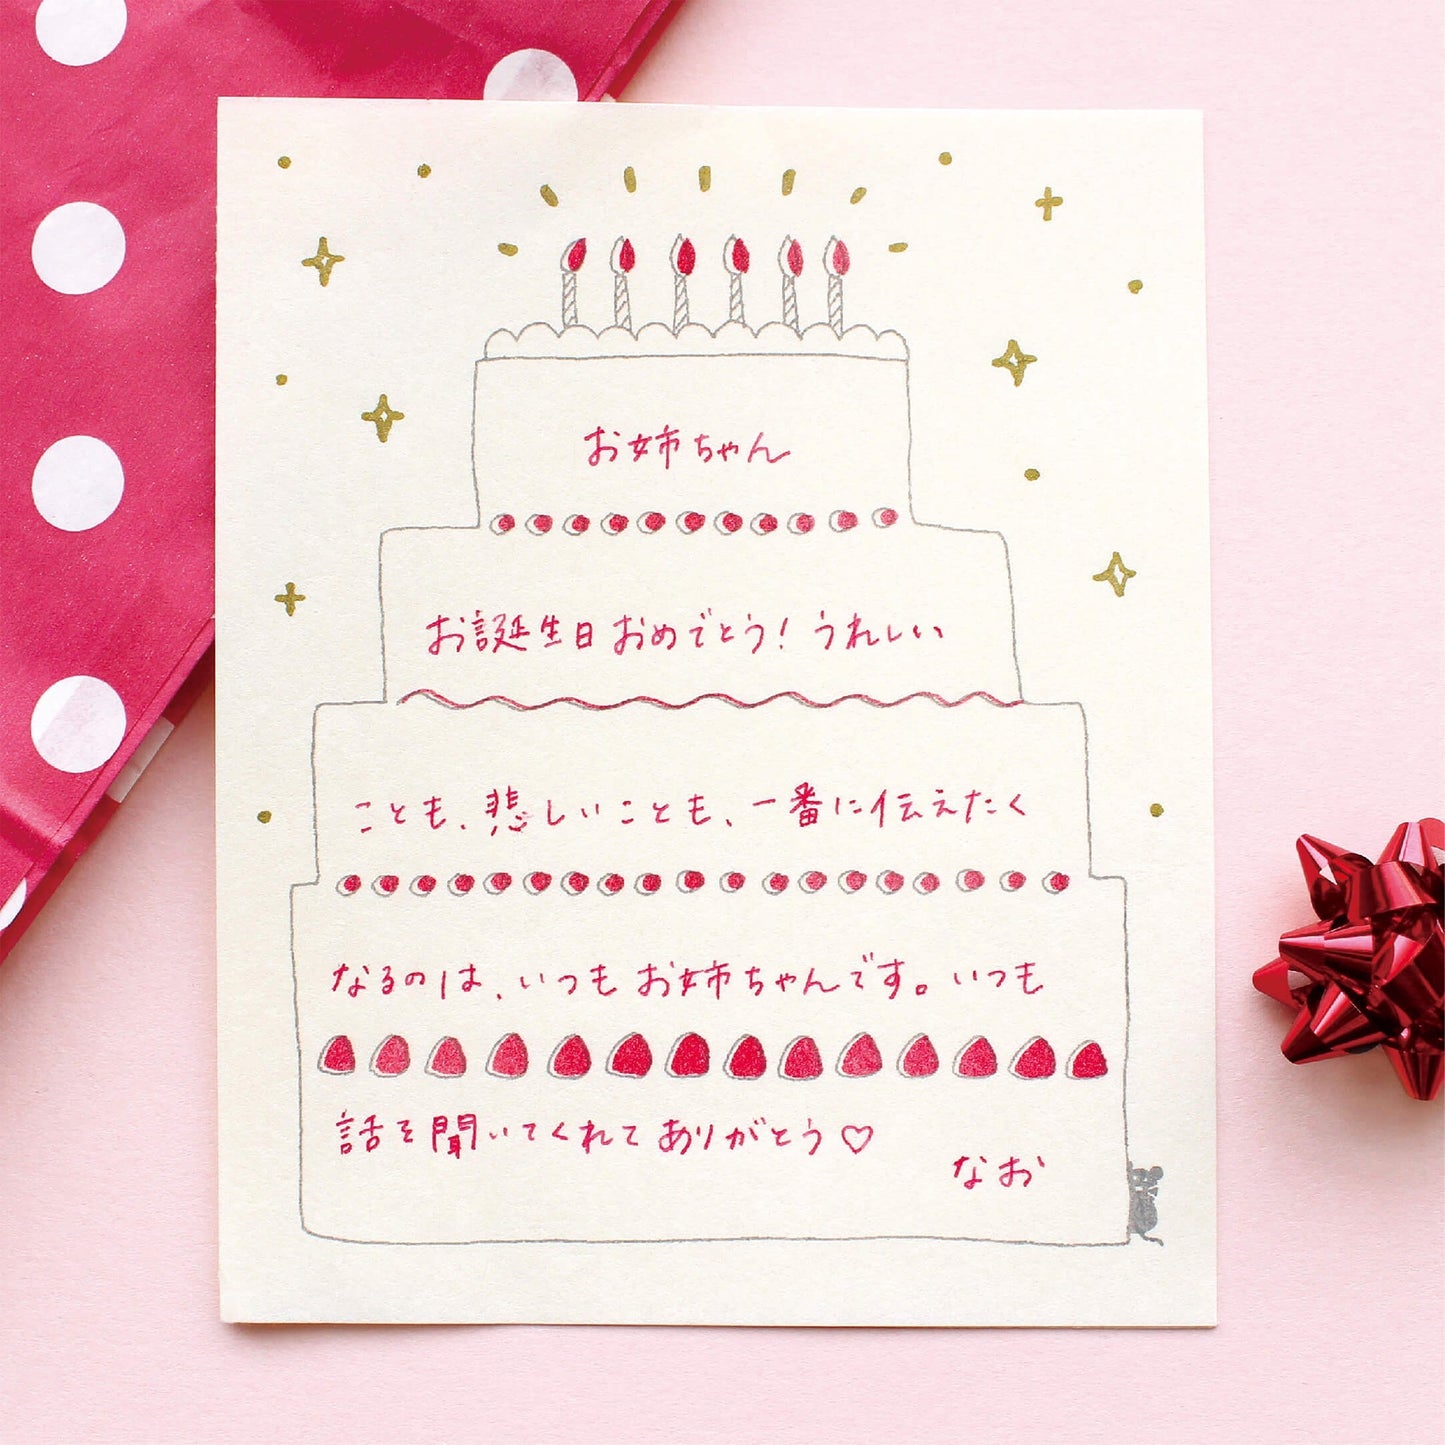 お姉ちゃん
お誕生日おめでとう！うれしい
ことも、悲しいことも、一番に伝えたく
なるのは、いつもお姉ちゃんです。いつも
話を聞いてくれてありがとう♡
なお